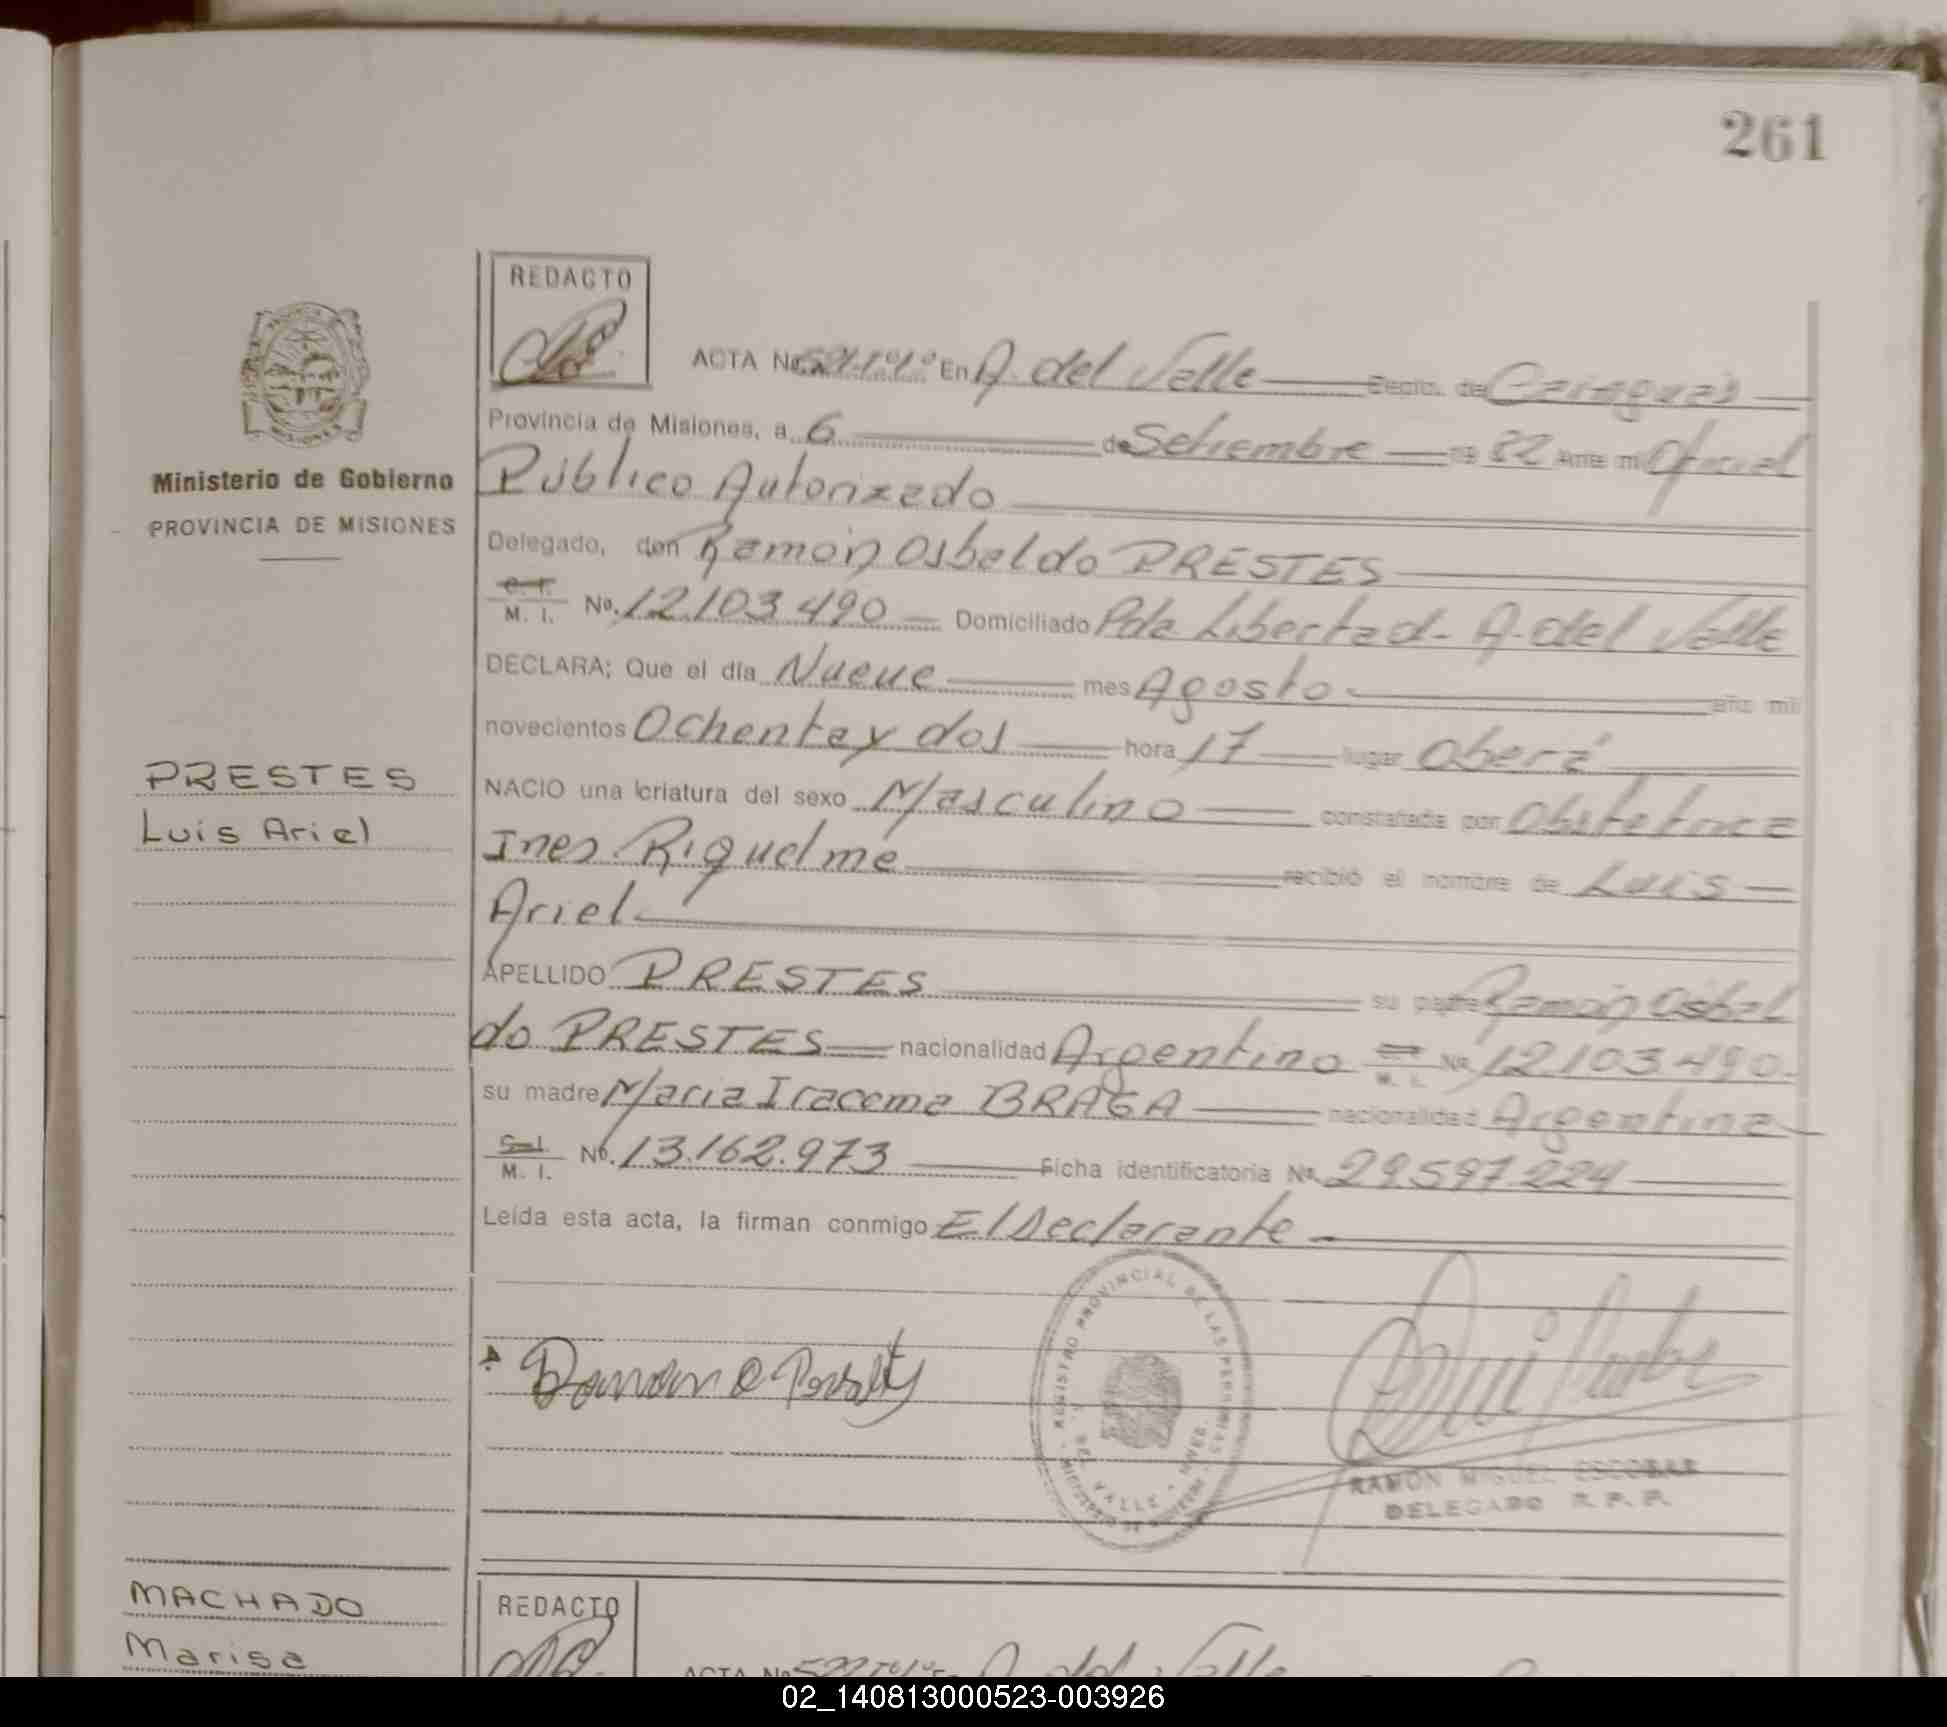 261
REDACTO
ACTA No. 521-Tº1º En A. del Valle Depto. de Cainguás
Ministerio de Gobierno
PROVINCIA DE MISIONES
Provincia de Misiones, a 6 de Setiembre 19 82 Ante mi Oficial
Público Autorizado
Delegado, don Ramón Osbaldo PRESTES
C. I.
M. I. No. 12.103.490 Domiciliado Pda Libertad - A. del Valle
DECLARA; Que el día Nueve mes Agosto año mil
novecientos Ochenta y dos hora 17 lugar Oberá
PRESTES
Luis Ariel
NACIO una criatura del sexo Masculino constatada por Obstetrica
Ines Riquelme recibió el nombre de Luis
Ariel
APELLIDO PRESTES su padre Ramón Osbal
do PRESTES nacionalidad Argentino M. I. No. 12.103.490
su madre Maria Iracema BRAGA nacionalidad Argentina
C. I.
M. I. No. 13.162.973 Ficha identificatoria No. 29.597.224
Leída esta acta, la firman conmigo El Declarante
REGISTRO PROVINCIAL DE LAS PERSONAS
DEL VALLE
Ramon O Prestes
RAMON MIGUEL ESCOBAR
DELEGADO R. P. P.
MACHADO
Marisa
REDACTO
ACTA No 522 Tº1º En A. del Valle
02_140813000523-003926